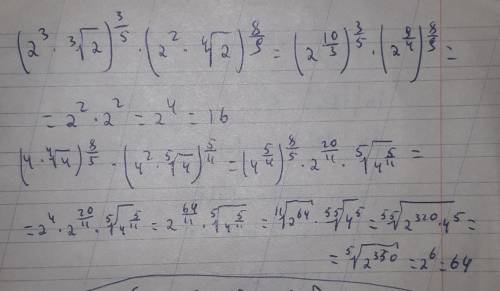 (2^3 · ∛2)^(3/5) · (2^2 · ∜2)^(8/9) = (2^(10/3))^(3/5) · (2^(9/4))^(8/9) =
= 2^2 · 2^2 = 2^4 = 16
(4 · ∜4)^(8/5) · (4^2 · ⁵√4)^(5/11) = (4^(5/4))^(8/5) · 2^(20/11) · ⁵√(4^(5/11)) =
= 2^4 · 2^(20/11) · ⁵√(4^(5/11)) = 2^(64/11) · ⁵√(4^(5/11)) = ¹¹√(2^64) · ⁵⁵√(4^5) = ⁵⁵√(2^320 · 4^5) =
= ⁵√(2^330) = 2^6 = 64